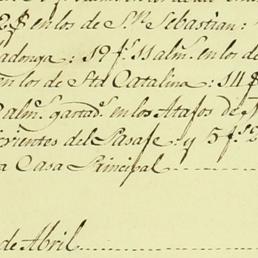 2$ en los de Sⁿ Sebastian:
adonga: 19 fˢ 11 almˢ en los de
en los de Stᵃ Catalina: 14 $
almˢ gastadˢ en los Atajos de
rientes del Pasaje: y 5 fˢ 2
a Casa Principal
de Abril